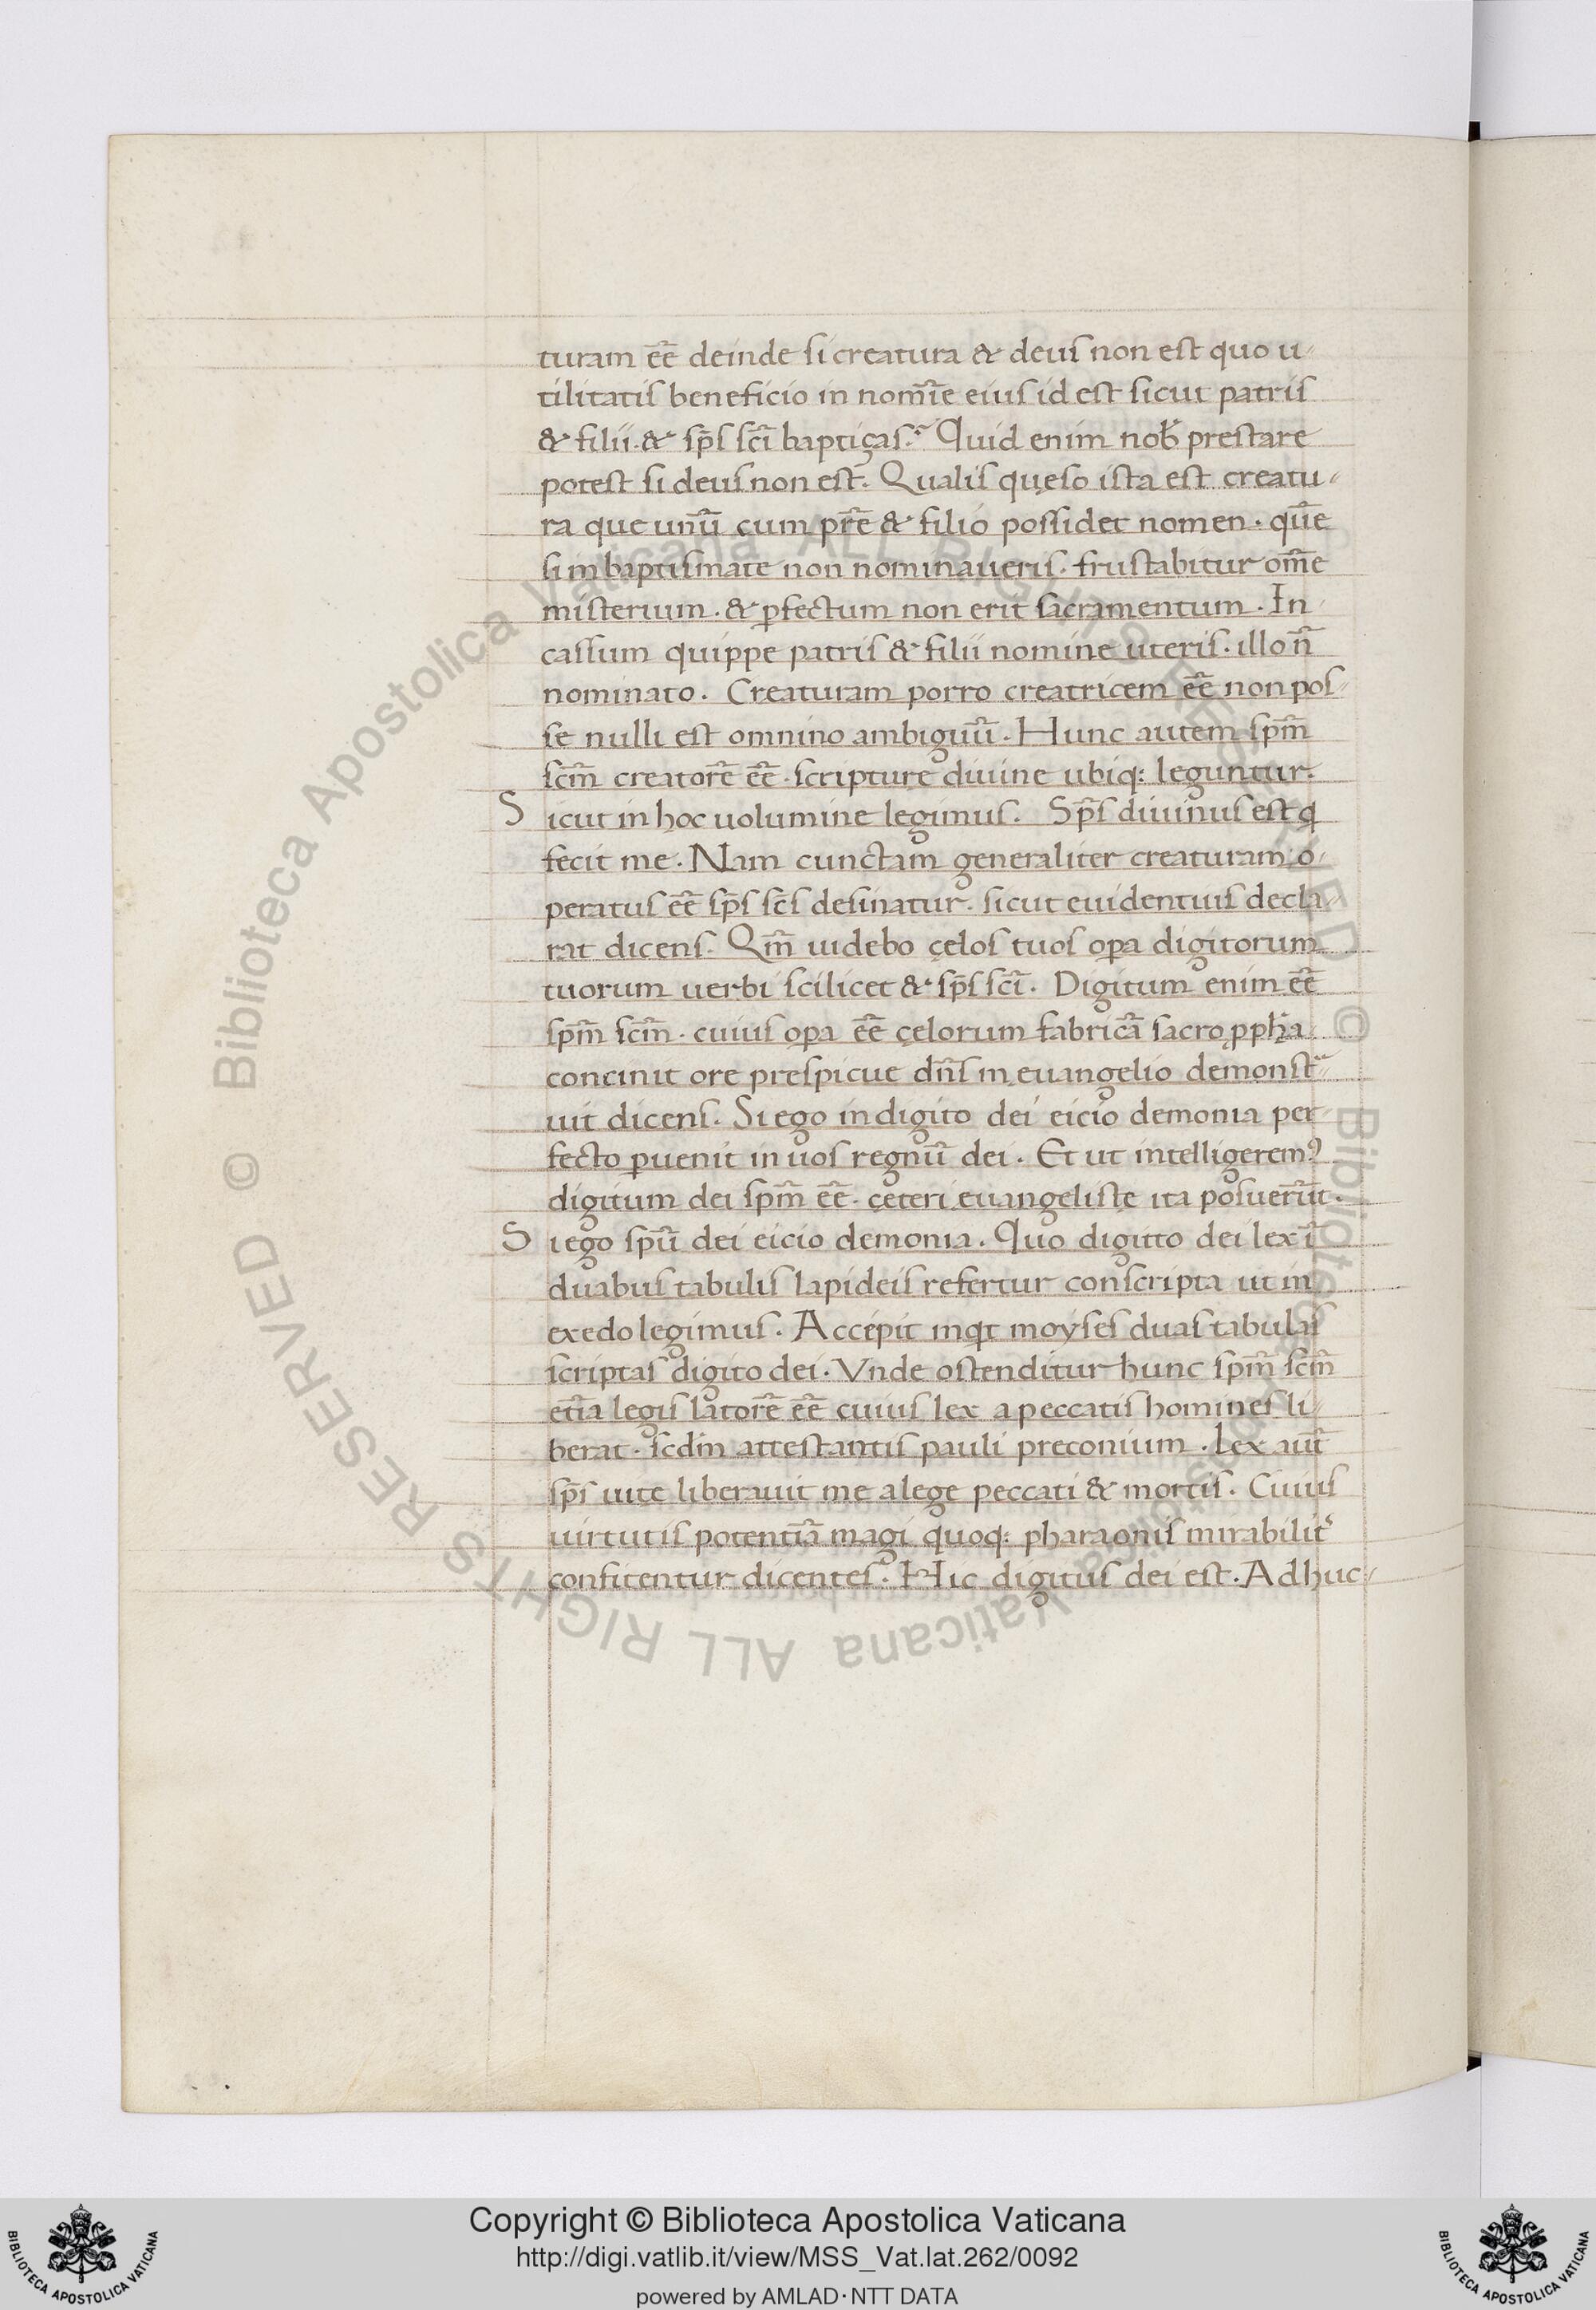 turam ēē deinde si creatura & deus non est quo u-
tilitatis beneficio in nom̄ie eius id est sicut patris
& filii. & sp̄s sc̄i baptiças. Quid enim nob̄ prestare
potest si deus non est. Qualis quęso ista est creatu-
ra que unū cum pr̄e & filio possidet nomen. quē
si in baptismate non nominaueris. frustabitur om̄e
misterium. & ꝑfectum non erit sacramentum. In
cassum quippe patris & filii nomine uteris. illo n̄
nominato. Creaturam porro creatricem ēē non pos-
se nulli est omnino ambiguū. Hunc autem sp̄m
sc̄m creatorē ēē. scripturę diuine ubiq: leguntur.
Sicut in hoc uolumine legimus. Sp̄s diuinus est q
fecit me. Nam cunctam generaliter creaturam o-
peratus ēē sp̄s sc̄s desinatur. sicut euidentius decla-
rat dicens. Qm̄ uidebo cęlos tuos oꝑa digitorum
tuorum uerbi scilicet & sp̄s sc̄i. Digitum enim ēē
sp̄m sc̄m. cuius oꝑa ēē cęlorum fabricā sacro ꝓph̄a
concinit ore prespicue dn̄s in euangelio demonst-
uit dicens. Si ego in digito dei eicio demonia per
fecto ꝑuenit in uos regnū dei. Et ut intelligerem⁹
digitum dei sp̄m ēē. cęteri euangelistę ita posuer̄ut.
Si ego spū dei eicio demonia. Quo digito dei lex ī
duabus tabulis lapideis refertur conscripta ut in
exedo legimus. Accepit inqt moyses duas tabulas
scriptas digito dei. Vnde ostenditur hunc sp̄m sc̄m
etīa legis latorē ēē cuius lex a peccatis homines li-
berat. scdm attestantis pauli preconium. Lex aut̄
sp̄s uitę liberauit me a lege peccati & mortis. Cuius
uirtutis potentiā magi quoq: pharaonis mirabilit̄
confitentur dicentes. Hic digitus dei est. Adhuc-
Copyright © Biblioteca Apostolica Vaticana
http://digi.vatlib.it/view/MSS_Vat.lat.262/0092
powered by AMLAD·NTT DATA
BIBLIOTECA APOSTOLICA VATICANA
BIBLIOTECA APOSTOLICA VATICANA
© Biblioteca Apostolica Vaticana ALL RIGHTS RESERVED © Biblioteca Apostolica Vaticana ALL RIGHTS RESERVED